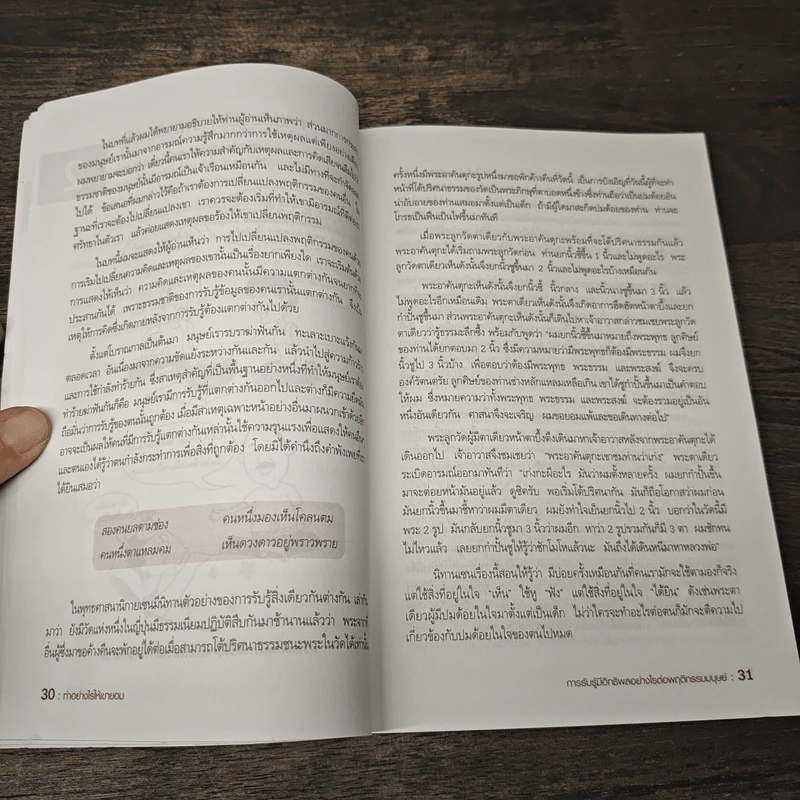 ในบทที่แล้วผมได้พยายามอธิบายให้ท่านผู้อ่านเห็นภาพว่า ส่วนมากการกระทำ
ของมนุษย์เรานั้นมาจากอารมณ์ความรู้สึกมากกว่าการใช้เหตุผลแต่เพียงอย่างเดียว
ผมพยายามจะบอกว่า เดี๋ยวนี้คนเราให้ความสำคัญกับเหตุผลและการคิดเสียจนลืมไปว่า
ธรรมชาติของมนุษย์นั้นมีอารมณ์เป็นเจ้าเรือนเหมือนกัน และไม่มีทางที่จะกำจัดออก
ไปได้ ข้อเสนอที่ผมกล่าวไว้คือถ้าเราต้องการเปลี่ยนแปลงพฤติกรรมของคนอื่น
ฐานะที่เราจะต้องไปเปลี่ยนแปลงเขา เราควรจะต้องเริ่มที่ทำให้เขามีอารมณ์
ศรัทธาในตัวเรา แล้วค่อยแสดงเหตุผลขอร้องให้เขาเปลี่ยนพฤติกรรม
ในบทนี้ผมจะแสดงให้ผู้อ่านเห็นว่า การไปเปลี่ยนแปลงพฤติกรรมของคนด้วย
การเริ่มไปเปลี่ยนความคิดและเหตุผลของเขานั้นเป็นเรื่องยากเพียงใด เราจะเริ่มต้น
การแสดงให้เห็นว่า ความคิดและเหตุผลของคนนั้นมีความแตกต่างกันจนยากที่จะ
ประสานกันได้ เพราะธรรมชาติของการรับรู้ข้อมูลของคนเรานั้นแตกต่างกัน จึงเป็น
เหตุให้การคิดซึ่งเกิดภายหลังจากการรับรู้ต้องแตกต่างกันไปด้วย
ตั้งแต่โบราณกาลเป็นต้นมา มนุษย์เรารบราฆ่าฟันกัน ทะเลาะเบาะแว้งกัน
ตลอดเวลา อันเนื่องมาจากความขัดแย้งระหว่างกันและกัน แล้วนำไปสู่ความก้าวร้าว
และการใช้กำลังทำร้ายกัน ซึ่งสาเหตุสำคัญที่เป็นพื้นฐานอย่างหนึ่งที่ทำให้มนุษย์เราต้อง
ทำร้ายฆ่าฟันกันก็คือ มนุษย์เรามีการรับรู้ที่แตกต่างกันออกไปและต่างก็มีความยึดมั่น
ถือมั่นว่าการรับรู้ของตนนั้นถูกต้อง เมื่อมีสาเหตุเฉพาะหน้าอย่างอื่นมาผนวกเข้าด้วย
อาจจะเป็นผลให้คนที่มีการรับรู้แตกต่างกันเหล่านั้นใช้ความรุนแรงเพื่อแสดงให้คนอื่น
และตนเองได้รู้ว่าตนกำลังกระทำการเพื่อสิ่งที่ถูกต้อง โดยมิได้คำนึงถึงคำพังเพยที่
ได้ยินเสมอว่า
สองคนยลตามช่อง คนหนึ่งมองเห็นโคลนตม
คนหนึ่งตาแหลมคม เห็นดวงดาวอยู่พราวพราย
ในพุทธศาสนานิกายเซนมีนิทานตัวอย่างของการรับรู้สิ่งเดียวกันต่างกัน เล่ากัน
มาว่า ยังมีวัดแห่งหนึ่งในญี่ปุ่นมีธรรมเนียมปฏิบัติสืบกันมาช้านานแล้วว่า พระจากที่
อื่นผู้ซึ่งมาขอค้างคืนจะพักอยู่ได้ต่อเมื่อสามารถโต้ปริศนาธรรมชนะพระในวัดได้เท่านั้น
30 : ทำอย่างไรให้เขายอม
ครั้งหนึ่งมีพระอาคันตุกะรูปหนึ่งมาขอพักค้างคืนที่วัดนี้ เป็นการบังเอิญที่วันนี้ผู้ที่จะทำ
หน้าที่โต้ปริศนาธรรมของวัดเป็นพระภิกษุที่ตาบอดหนึ่งข้างซึ่งท่านถือว่าเป็นปมด้อยอัน
น่าอับอายของท่านเสมอมาตั้งแต่เป็นเด็ก ถ้ามีผู้ใดมาสะกิดปมด้อยของท่าน ท่านจะ
โกรธเป็นฟืนเป็นไฟขึ้นมาทันที
เมื่อพระลูกวัดตาเดียวกับพระอาคันตุกะพร้อมที่จะโต้ปริศนาธรรมกันแล้ว
พระอาคันตุกะได้เริ่มถามพระลูกวัดก่อน ท่านยกนิ้วชี้ขึ้น 1 นิ้วและไม่พูดอะไร พระ
ลูกวัดตาเดียวเห็นดังนั้นจึงยกนิ้วชูขึ้นมา 2 นิ้วและไม่พูดอะไรบ้างเหมือนกัน
พระอาคันตุกะเห็นดังนั้นจึงยกนิ้วชี้ นิ้วกลาง และนิ้วนางชูขึ้นมา 3 นิ้ว แล้ว
ไม่พูดอะไรอีกเหมือนเดิม พระตาเดียวเห็นดังนั้นจึงเกิดอาการฮึดฮัดหน้าตาบึ้งและยก
กำปั้นชูขึ้นมา ส่วนพระอาคันตุกะเห็นดังนั้นก็เดินไปหาเจ้าอาวาสกล่าวชมเชยพระลูกวัด
ตาเดียวว่ารู้ธรรมะลึกซึ้ง พร้อมกับพูดว่า "ผมยกนิ้วชี้ขึ้นมาหมายถึงพระพุทธ ลูกศิษย์
ของท่านได้ยกตอบมา 2 นิ้ว ซึ่งมีความหมายว่ามีพระพุทธก็ต้องมีพระธรรม ผมจึงยก
นิ้วชูไป 3 นิ้วบ้าง เพื่อตอบว่าต้องมีพระพุทธ พระธรรม และพระสงฆ์ จึงจะครบ
องค์รัตนตรัย ลูกศิษย์ของท่านช่างหลักแหลมเหลือเกิน เขาได้ชูกำปั้นขึ้นมาเป็นคำตอบ
ให้ผม ซึ่งหมายความว่าทั้งพระพุทธ พระธรรม และพระสงฆ์ จะต้องรวมอยู่เป็นอัน
หนึ่งอันเดียวกัน ศาสนาจึงจะเจริญ ผมขอยอมแพ้และขอเดินทางต่อไป"
พระลูกวัดผู้มีตาเดียวหน้าตาบึ้งตึงเดินมาหาเจ้าอาวาสหลังจากพระอาคันตุกะได้
เดินออกไป เจ้าอาวาสจึงชมเชยว่า "พระอาคันตุกะเขาชมท่านว่าเก่ง" พระตาเดียว
ระเบิดอารมณ์ออกมาทันทีว่า "เก่งกะผีอะไร มันว่าผมตั้งหลายครั้ง ผมยกกำปั้นขึ้น
มาจะต่อยหน้ามันอยู่แล้ว ดูซิครับ พอเริ่มโต้ปริศนากัน มันก็ถือโอกาสว่าผมก่อน
มันยกนิ้วขึ้นมาชี้หาว่าผมมีตาเดียว ผมยังทำใจเย็นยกนิ้วไป 2 นิ้ว บอกว่าในวัดนี้มี
พระ 2 รูป มันกลับยกนิ้วชูมา 3 นิ้วว่าผมอีก หาว่า 2 รูปรวมกันก็มี 3 ตา ผมชักทน
ไม่ไหวแล้ว เลยยกกำปั้นชูให้รู้ว่าชักโมโหแล้วนะ มันถึงได้เดินหนีมาหาหลวงพ่อ"
นิทานเซนเรื่องนี้สอนให้รู้ว่า มีบ่อยครั้งเหมือนกันที่คนเรามักจะใช้ตามองก็จริง
แต่ใช้สิ่งที่อยู่ในใจ "เห็น" ใช้หู "ฟัง" แต่ใช้สิ่งที่อยู่ในใจ "ได้ยิน" ดังเช่นพระตา
เดียวผู้มีปมด้อยในใจมาตั้งแต่เป็นเด็ก ไม่ว่าใครจะทำอะไรต่อตนก็มักจะตีความไป
เกี่ยวข้องกับปมด้อยในใจของตนไปหมด
การรับรู้มีอิทธิพลอย่างไรต่อพฤติกรรมมนุษย์ : 31